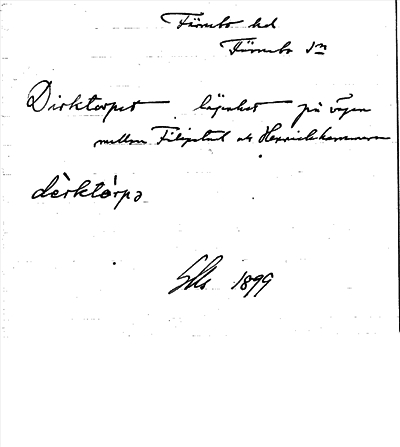 Färnebo hd
Färnebo sn
Dirktorpet lägenhet på vägen
mellan Filipstad och Henrikshammaren
dèrktórpə
1899